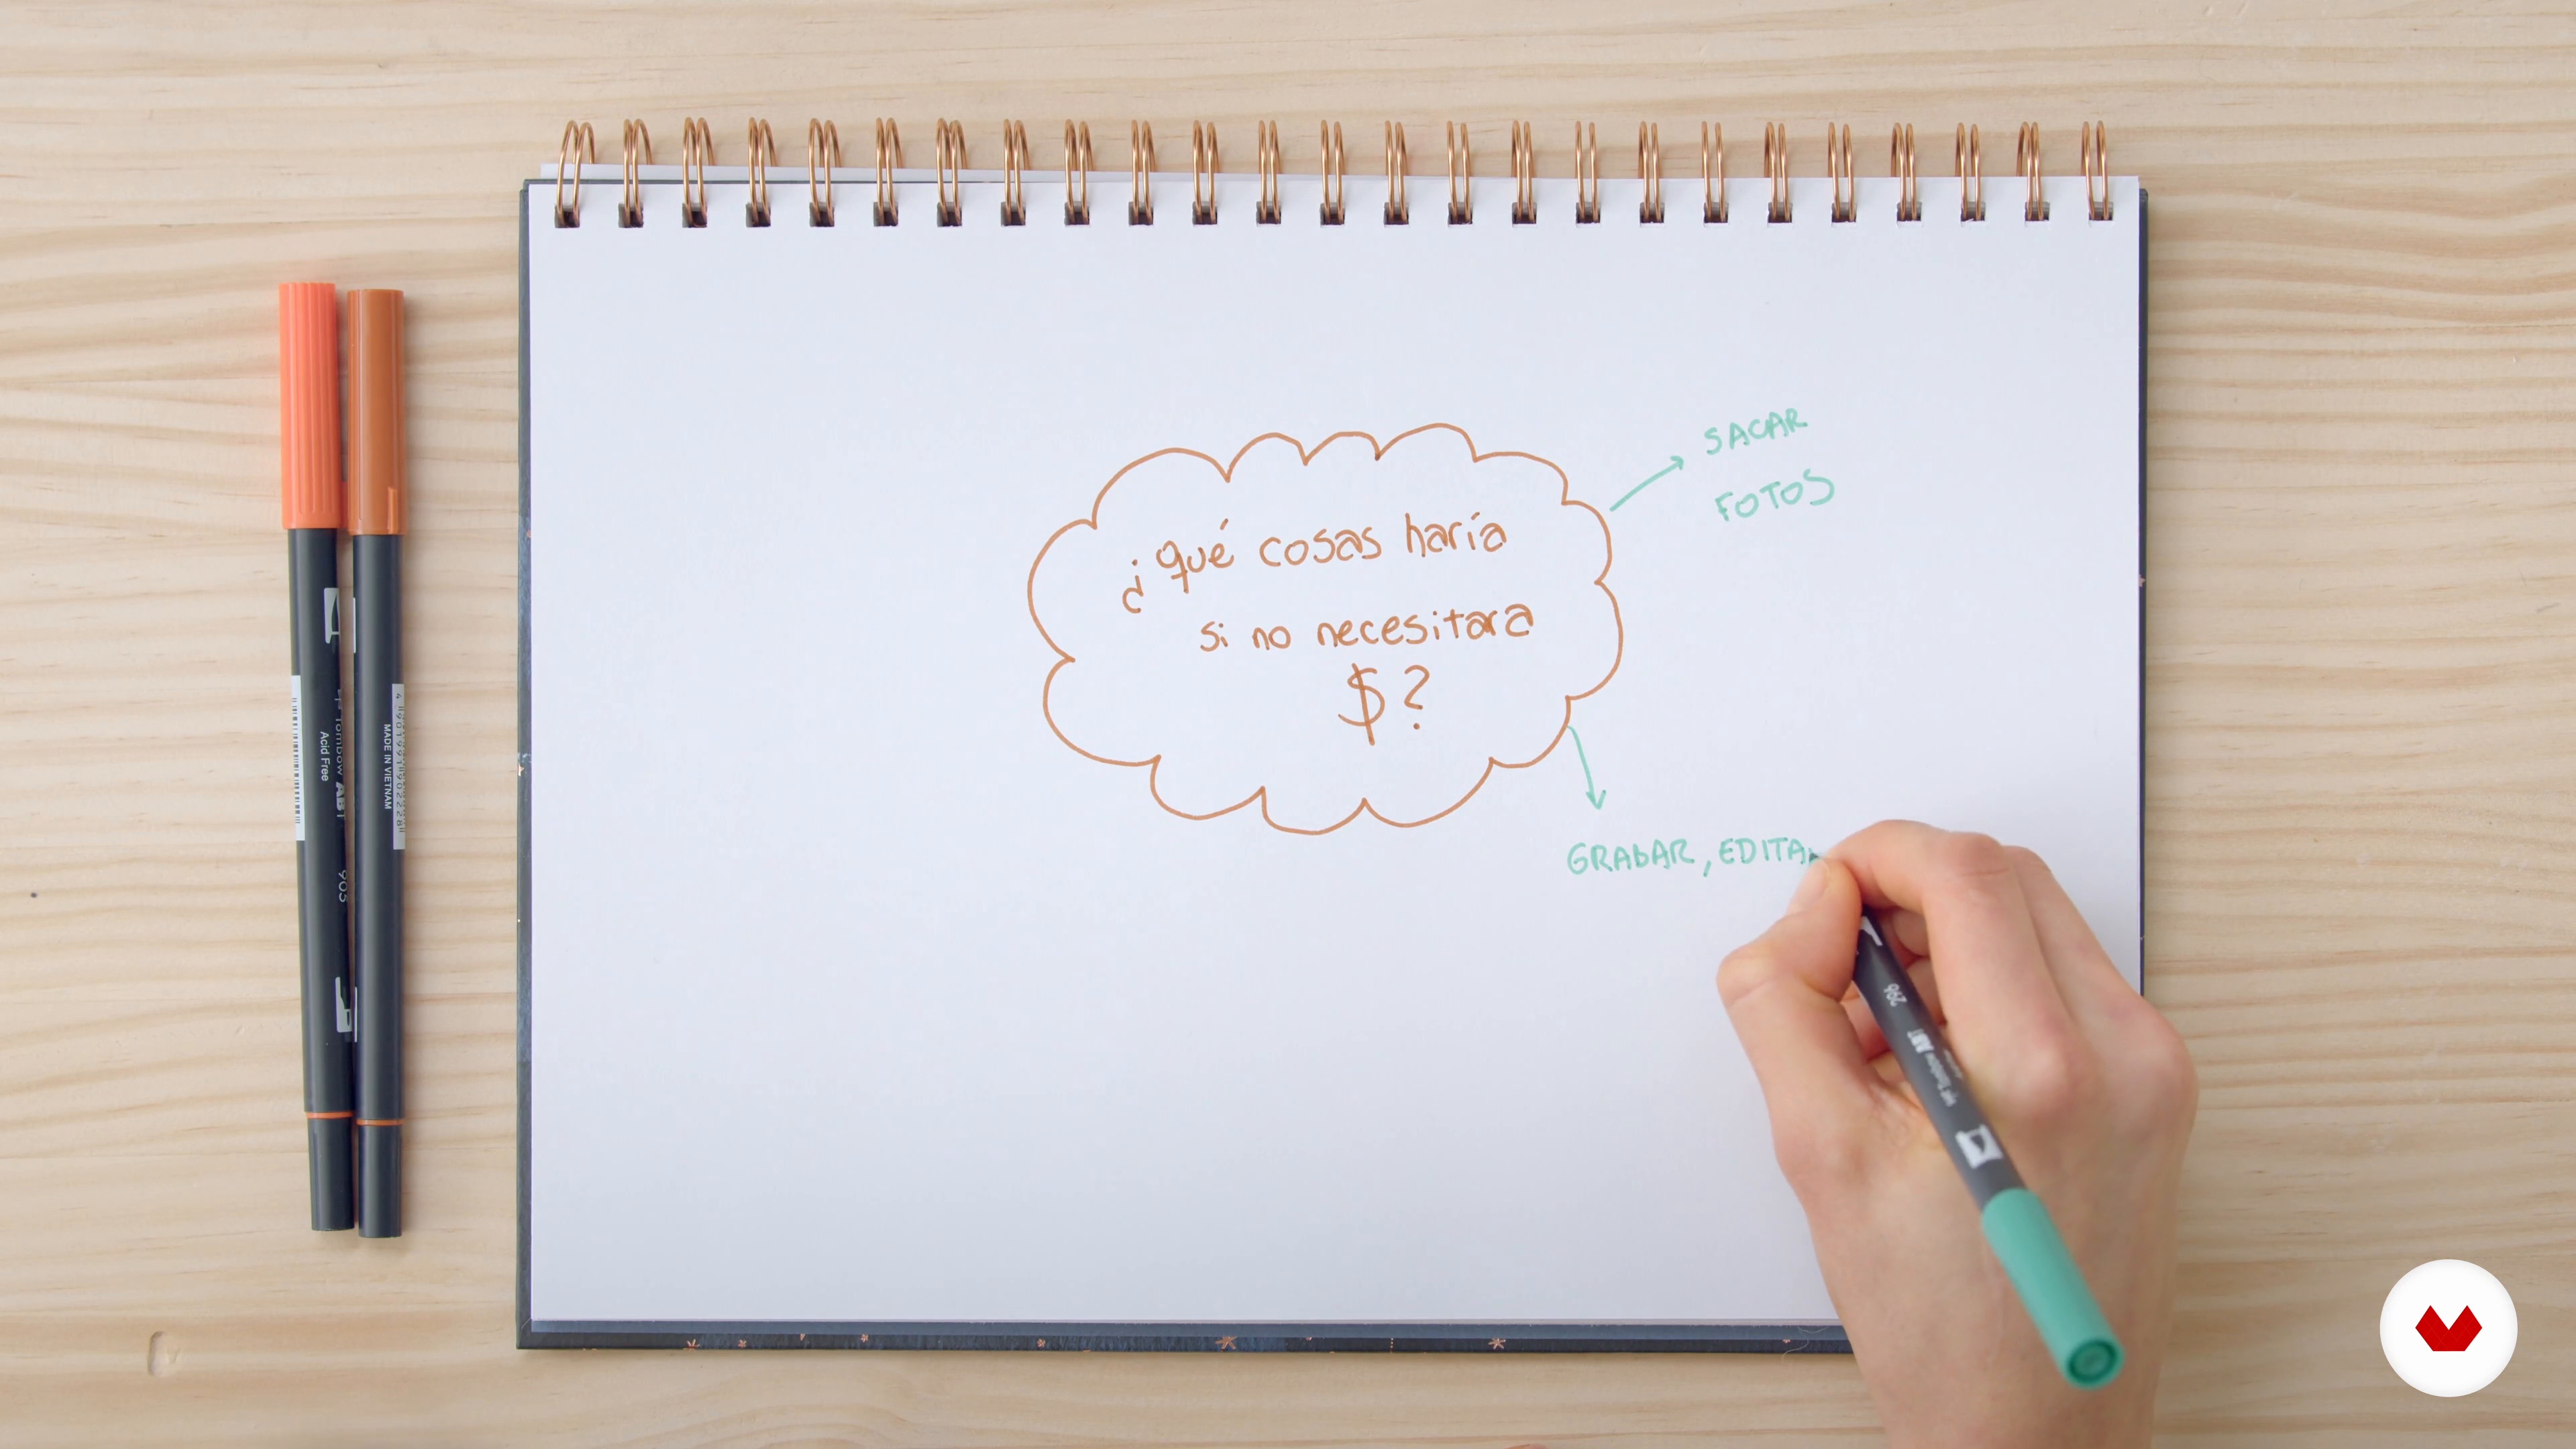 SACAR
FOTOS
¿qué cosas haría
si no necesitara
$?
GRABAR, EDITA
Tombow ABT
Acid Free
905
MADE IN VIETNAM
296
Tombow ABT